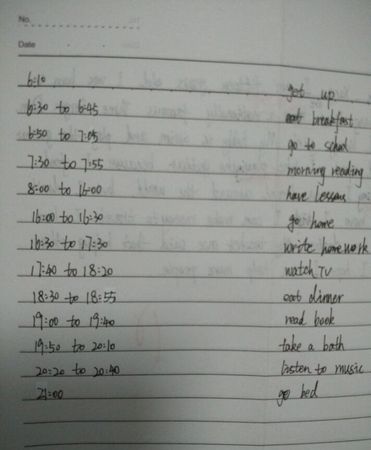 No.
Date
6:10 get up
6:30 to 6:45 eat breakfast
6:50 to 7:05 go to school
7:30 to 7:55 morning reading
8:00 to 16:00 have lessons
16:00 to 16:30 go home
16:30 to 17:30 write homework
17:40 to 18:20 watch TV
18:30 to 18:55 eat dinner
19:00 to 19:40 read book
19:50 to 20:10 take a bath
20:20 to 20:40 listen to music
21:00 go bed